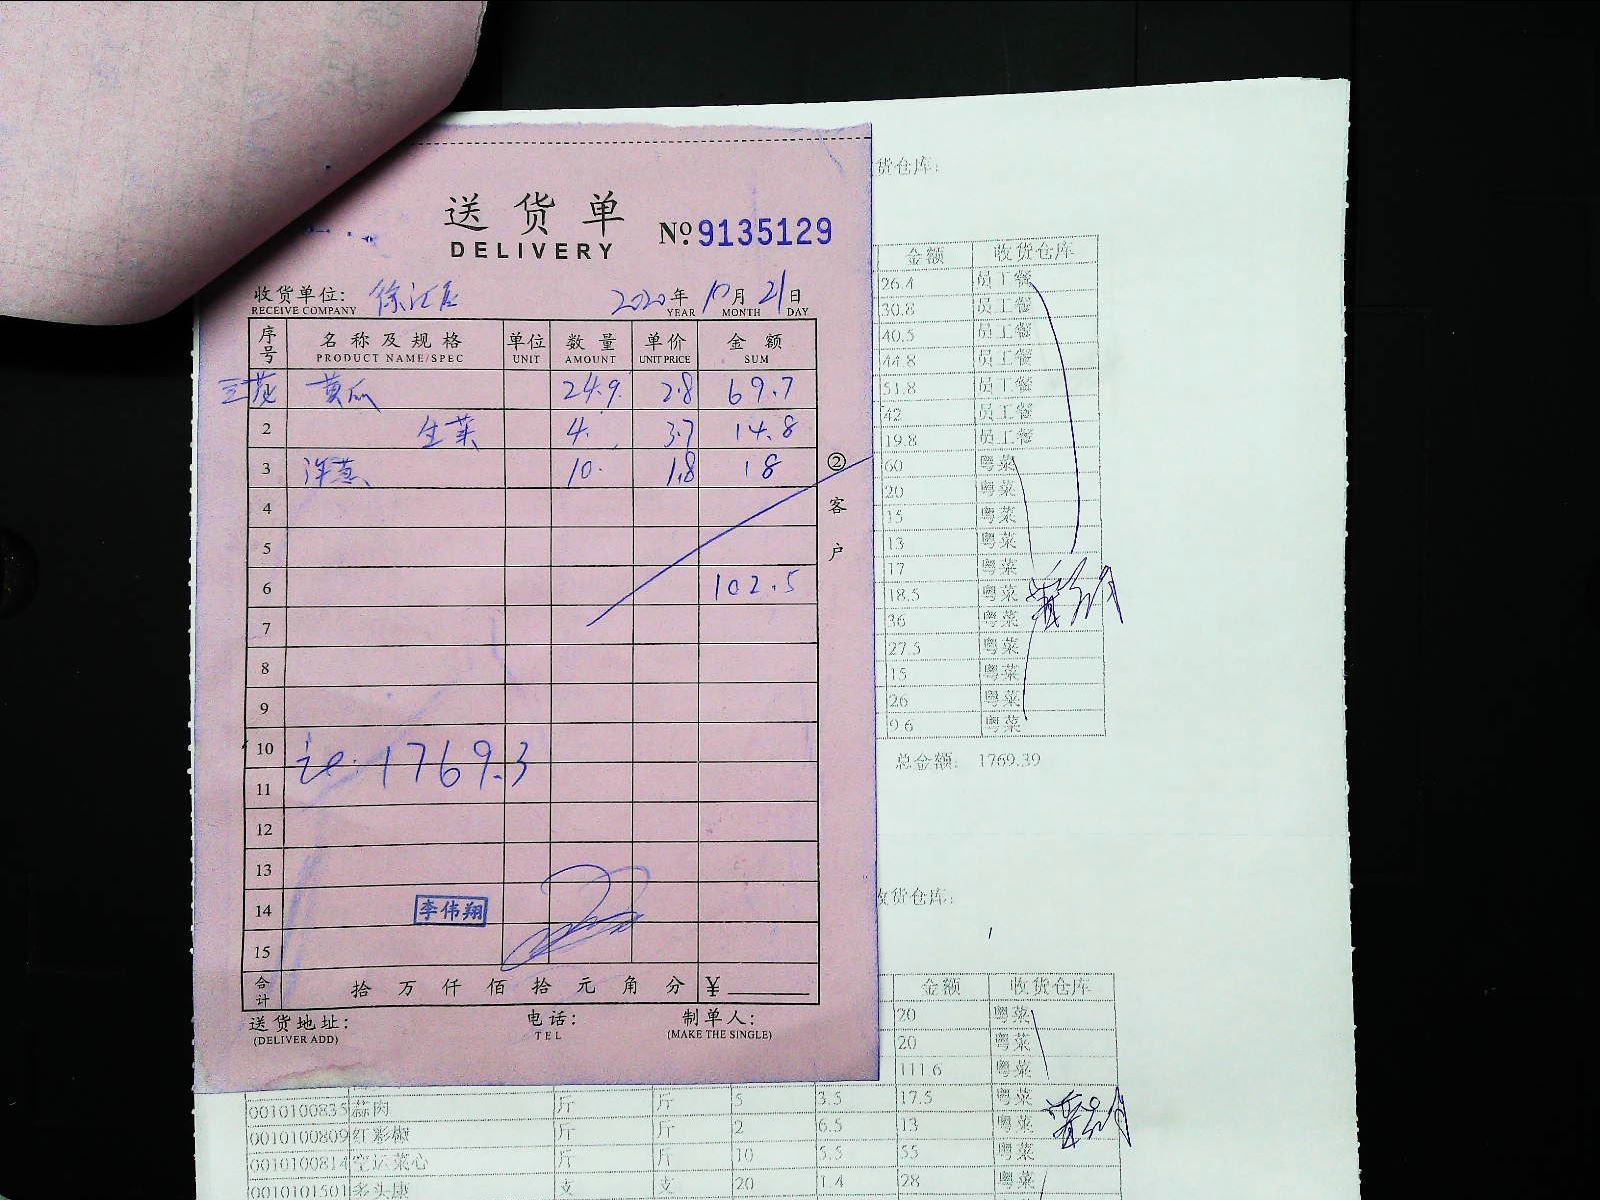 送货单
DELIVERY
№ 9135129
收货单位: 徐汇店 2020年10月21日
RECEIVE COMPANY YEAR MONTH DAY
序号 名称及规格 单位 数量 单价 金额
PRODUCT NAME/SPEC UNIT AMOUNT UNIT PRICE SUM
黄瓜 24.9 2.8 69.7
2 生菜 4. 3.7 14.8
3 洋葱 10. 1.8 18
4
5
6 102.5
7
8
9
10
11
1769.3
12
13
14 李伟翔
15
合计 拾 万 仟 佰 拾 元 角 分 ¥
送货地址: 电话: 制单人:
(DELIVER ADD) TEL (MAKE THE SINGLE)
②客户
货仓库:
金额 收货仓库
26.4 员工餐
30.8 员工餐
40.5 员工餐
44.8 员工餐
51.8 员工餐
42 员工餐
19.8 员工餐
60 粤菜
20 粤菜
15 粤菜
13 粤菜
17 粤菜
18.5 粤菜
36 粤菜
27.5 粤菜
15 粤菜
26 粤菜
9.6 粤菜
总金额: 1769.39
收货仓库:
金额 收货仓库
20 粤菜
20 粤菜
111.6 粤菜
0010100835 蒜肉 斤 斤 5 3.5 17.5 粤菜
0010100809 红彩椒 斤 斤 2 6.5 13 粤菜
0010100814 空运菜心 斤 斤 10 5.5 55 粤菜
0010101501 支 支 20 1.4 28 粤菜